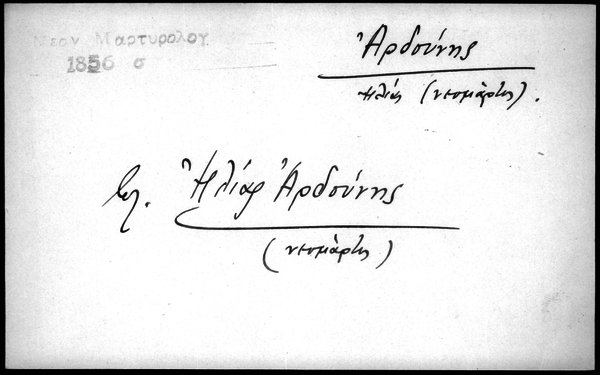 Νεον Μαρτυρολογ
1856 σ
Ἀρδούνης
Ηλίας (νεομάρτυς).
βλ. Ἠλίας Ἀρδούνης
(νεομάρτυς)